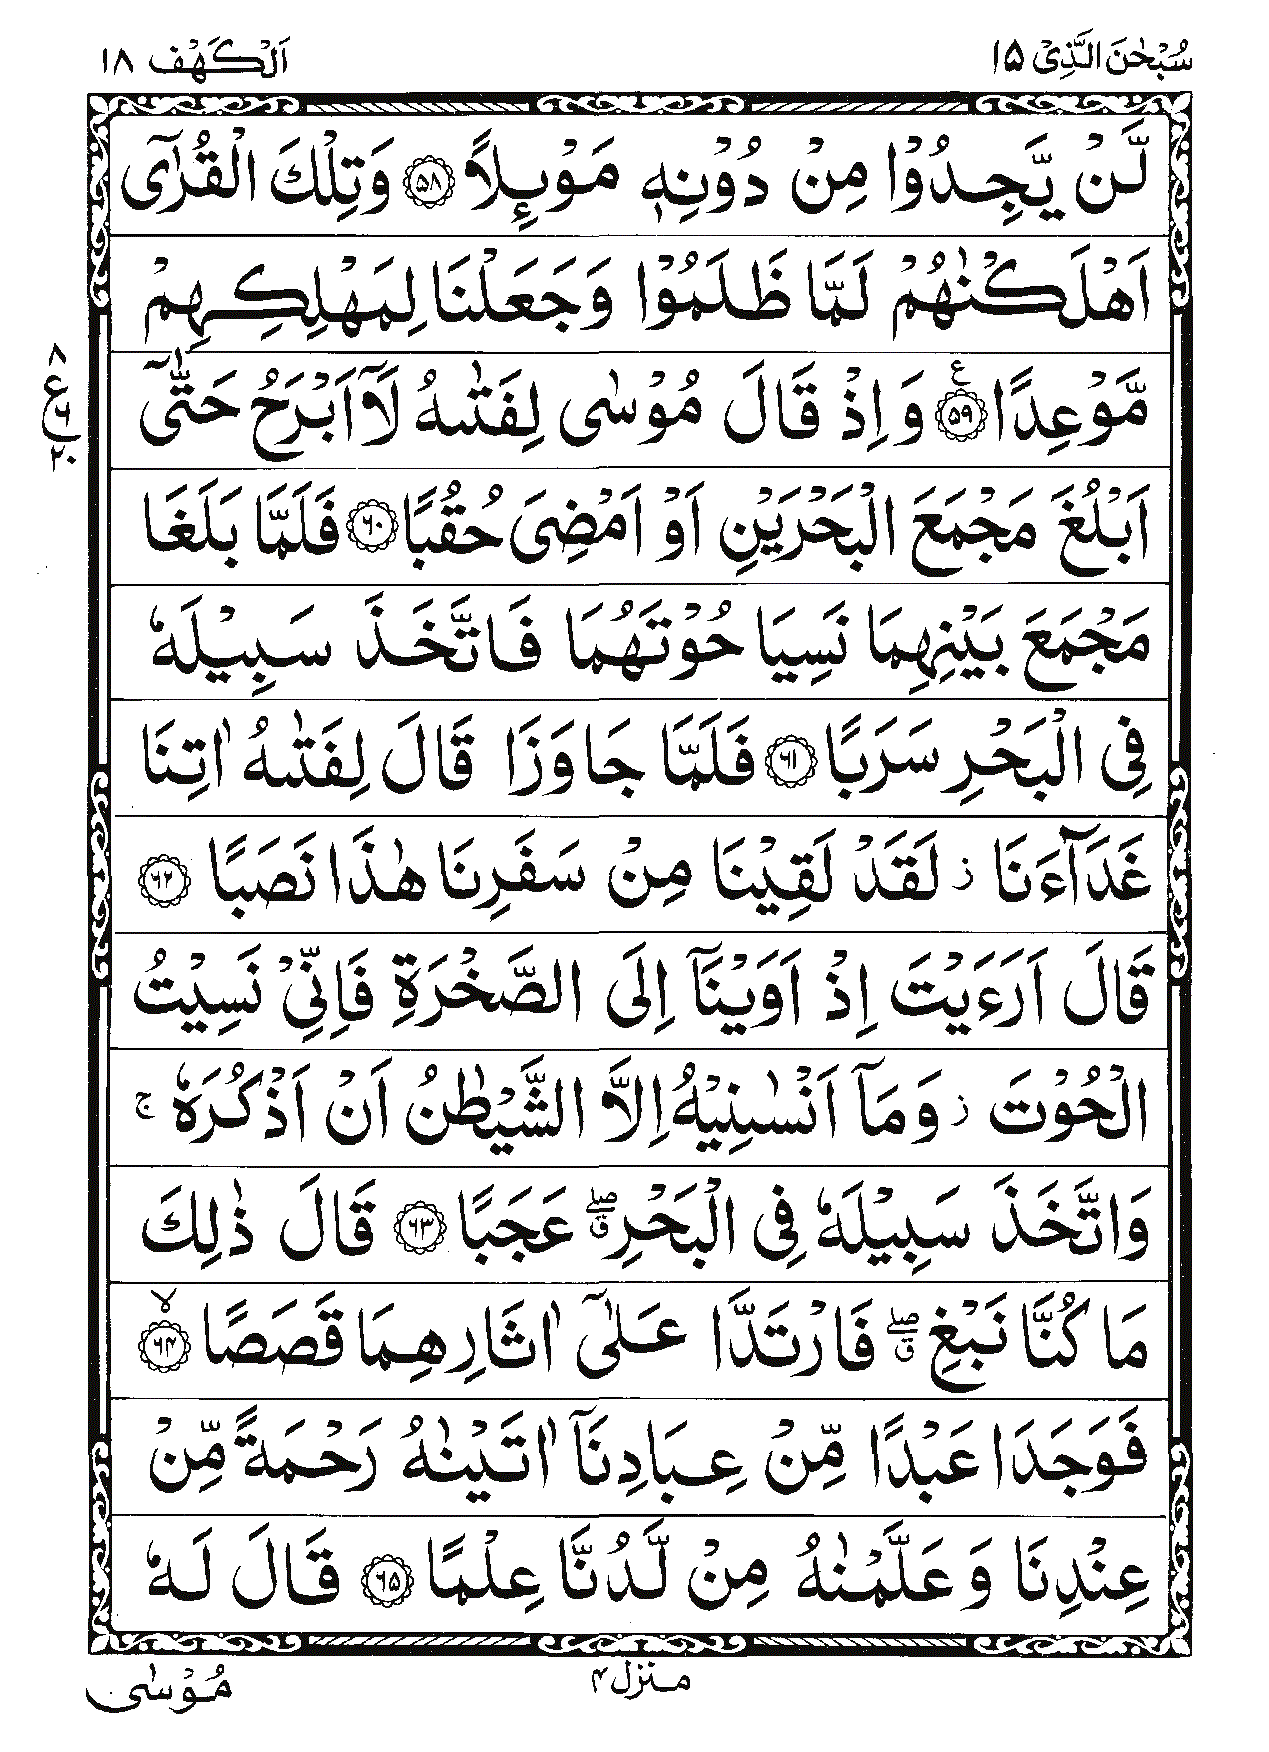 سُبْحٰنَ الَّذِیْ ۱۵
اَلْكَهْف ۱۸
لَّنْ یَّجِدُوْا مِنْ دُوْنِهٖ مَوْىِٕلًا ۝۵۸ وَتِلْكَ الْقُرٰۤی
اَهْلَكْنٰهُمْ لَمَّا ظَلَمُوْا وَجَعَلْنَا لِمَهْلِكِهِمْ
مَّوْعِدًا ۝۵۹ ع وَاِذْ قَالَ مُوْسٰی لِفَتٰىهُ لَاۤ اَبْرَحُ حَتّٰۤی
۸ ع ۶ ۲۰
اَبْلُغَ مَجْمَعَ الْبَحْرَیْنِ اَوْ اَمْضِیَ حُقُبًا ۝۶۰ فَلَمَّا بَلَغَا
مَجْمَعَ بَیْنِهِمَا نَسِیَا حُوْتَهُمَا فَاتَّخَذَ سَبِیْلَهٗ
فِی الْبَحْرِ سَرَبًا ۝۶۱ فَلَمَّا جَاوَزَا قَالَ لِفَتٰىهُ اٰتِنَا
غَدَآءَنَا ز لَقَدْ لَقِیْنَا مِنْ سَفَرِنَا هٰذَا نَصَبًا ۝۶۲
قَالَ اَرَءَیْتَ اِذْ اَوَیْنَاۤ اِلَی الصَّخْرَةِ فَاِنِّیْ نَسِیْتُ
الْحُوْتَ ز وَمَاۤ اَنْسٰىنِیْهُ اِلَّا الشَّیْطٰنُ اَنْ اَذْكُرَهٗ ج
وَاتَّخَذَ سَبِیْلَهٗ فِی الْبَحْرِ ق صلے عَجَبًا ۝۶۳ قَالَ ذٰلِكَ
مَا كُنَّا نَبْغِ ق صلے فَارْتَدَّا عَلٰۤی اٰثَارِهِمَا قَصَصًا ۝۶۴ لا
فَوَجَدَا عَبْدًا مِّنْ عِبَادِنَاۤ اٰتَیْنٰهُ رَحْمَةً مِّنْ
عِنْدِنَا وَعَلَّمْنٰهُ مِنْ لَّدُنَّا عِلْمًا ۝۶۵ قَالَ لَهٗ
منزل ۴
مُوْسٰی